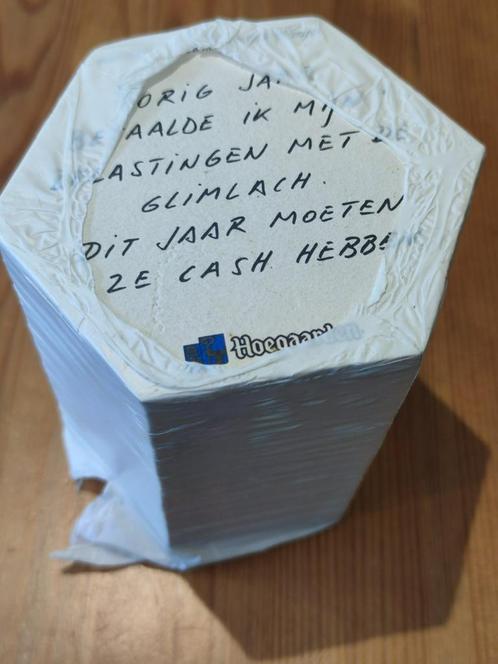 ORIG JA
AALDE IK MIJ
LASTINGEN MET DE
GLIMLACH.
DIT JAAR MOETEN
ZE CASH HEBBEN
Hoegaarden